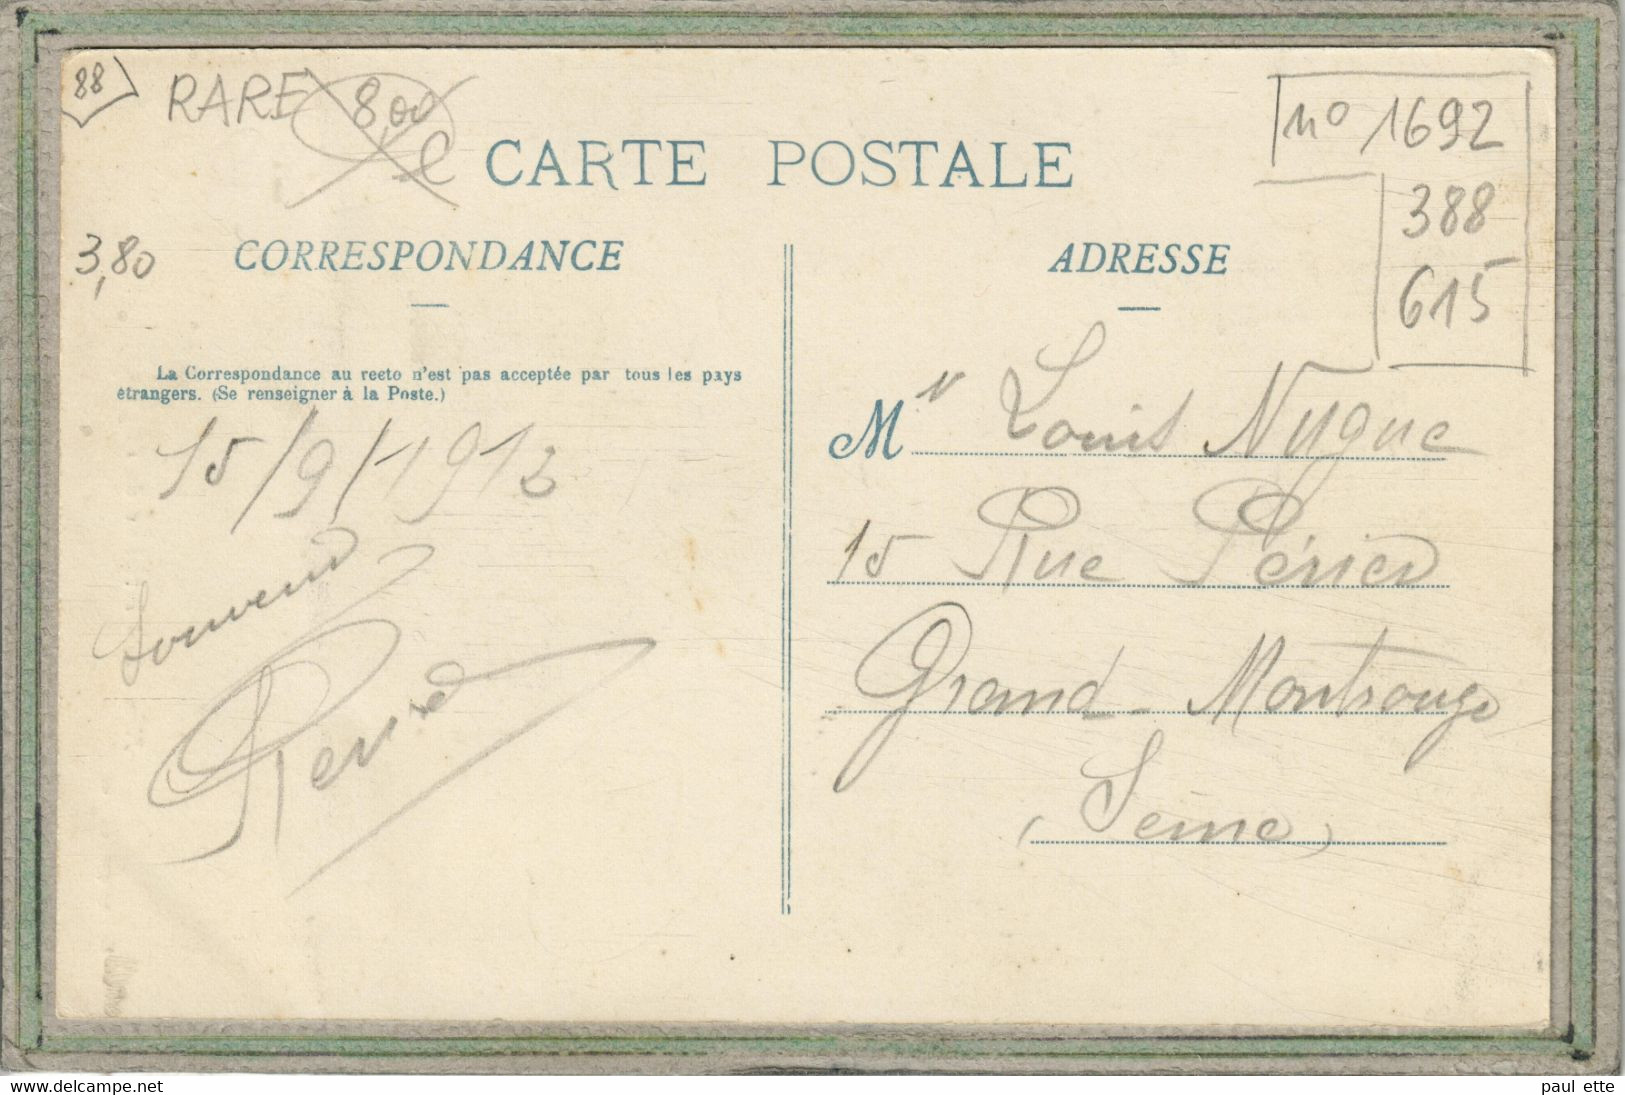 88
RARE 8,00
CARTE POSTALE
no 1692
388
615
3,80
CORRESPONDANCE
ADRESSE
La Correspondance au recto n'est pas acceptée par tous les pays
étrangers. (Se renseigner à la Poste.)
15/9/1913
Souvenir
Mr Louis Nugue
15 Rue Périer
Grand-Montrouge
(Seine)
www.delcampe.net
paul ette